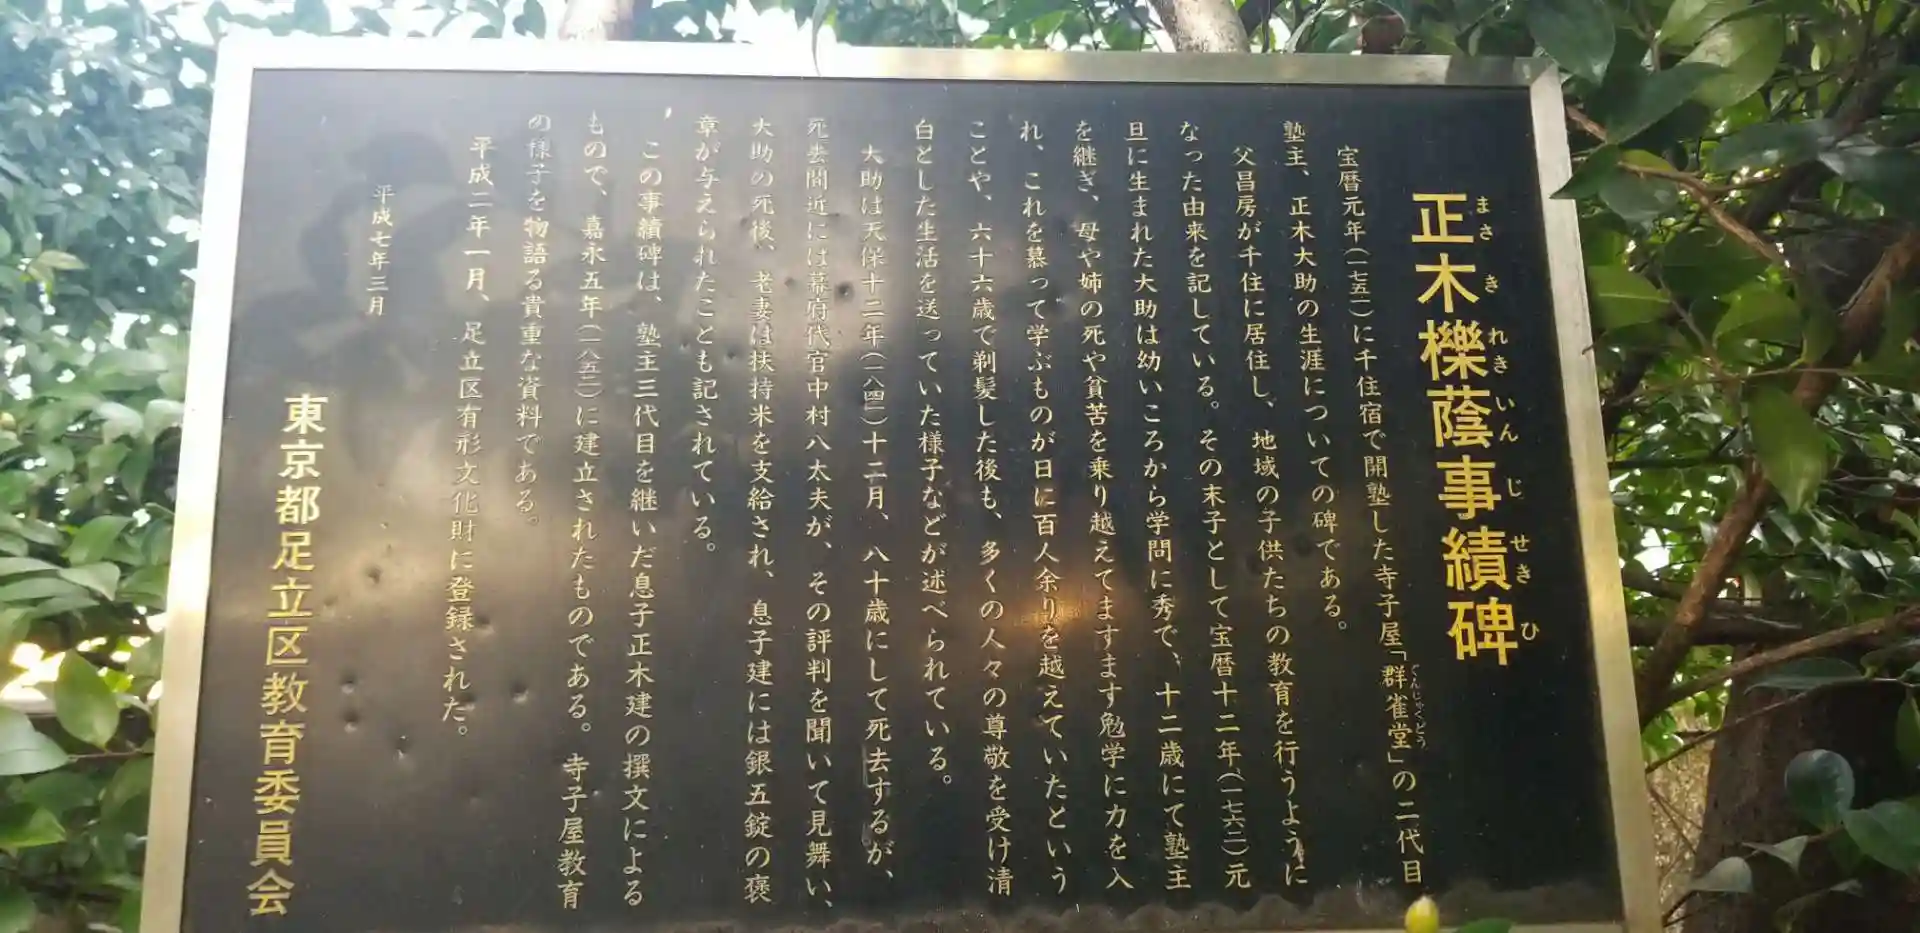 正木櫟蔭事績碑
まさ き れき いん じ せき ひ
宝暦元年(一七五一)に千住宿で開塾した寺子屋「群雀堂」の二代目
ぐんじゃくどう
塾主、正木大助の生涯についての碑である。
父昌房が千住に居住し、地域の子供たちの教育を行うように
なった由来を記している。その末子として宝暦十二年(一七六二)元
旦に生まれた大助は幼いころから学問に秀で、十二歳にて塾主
を継ぎ、母や姉の死や貧苦を乗り越えてますます勉学に力を入
れ、これを慕って学ぶものが日に百人余りを越えていたという
ことや、六十六歳で剃髪した後も、多くの人々の尊敬を受け清
白とした生活を送っていた様子などが述べられている。
大助は天保十二年(一八四一)十二月、八十歳にして死去するが、
死去間近には幕府代官中村八太夫が、その評判を聞いて見舞い、
大助の死後、老妻は扶持米を支給され、息子建には銀五錠の褒
章が与えられたことも記されている。
この事績碑は、塾主三代目を継いだ息子正木建の撰文による
もので、嘉永五年(一八五二)に建立されたものである。寺子屋教育
の様子を物語る貴重な資料である。
平成二年一月、足立区有形文化財に登録された。
平成七年三月
東京都足立区教育委員会